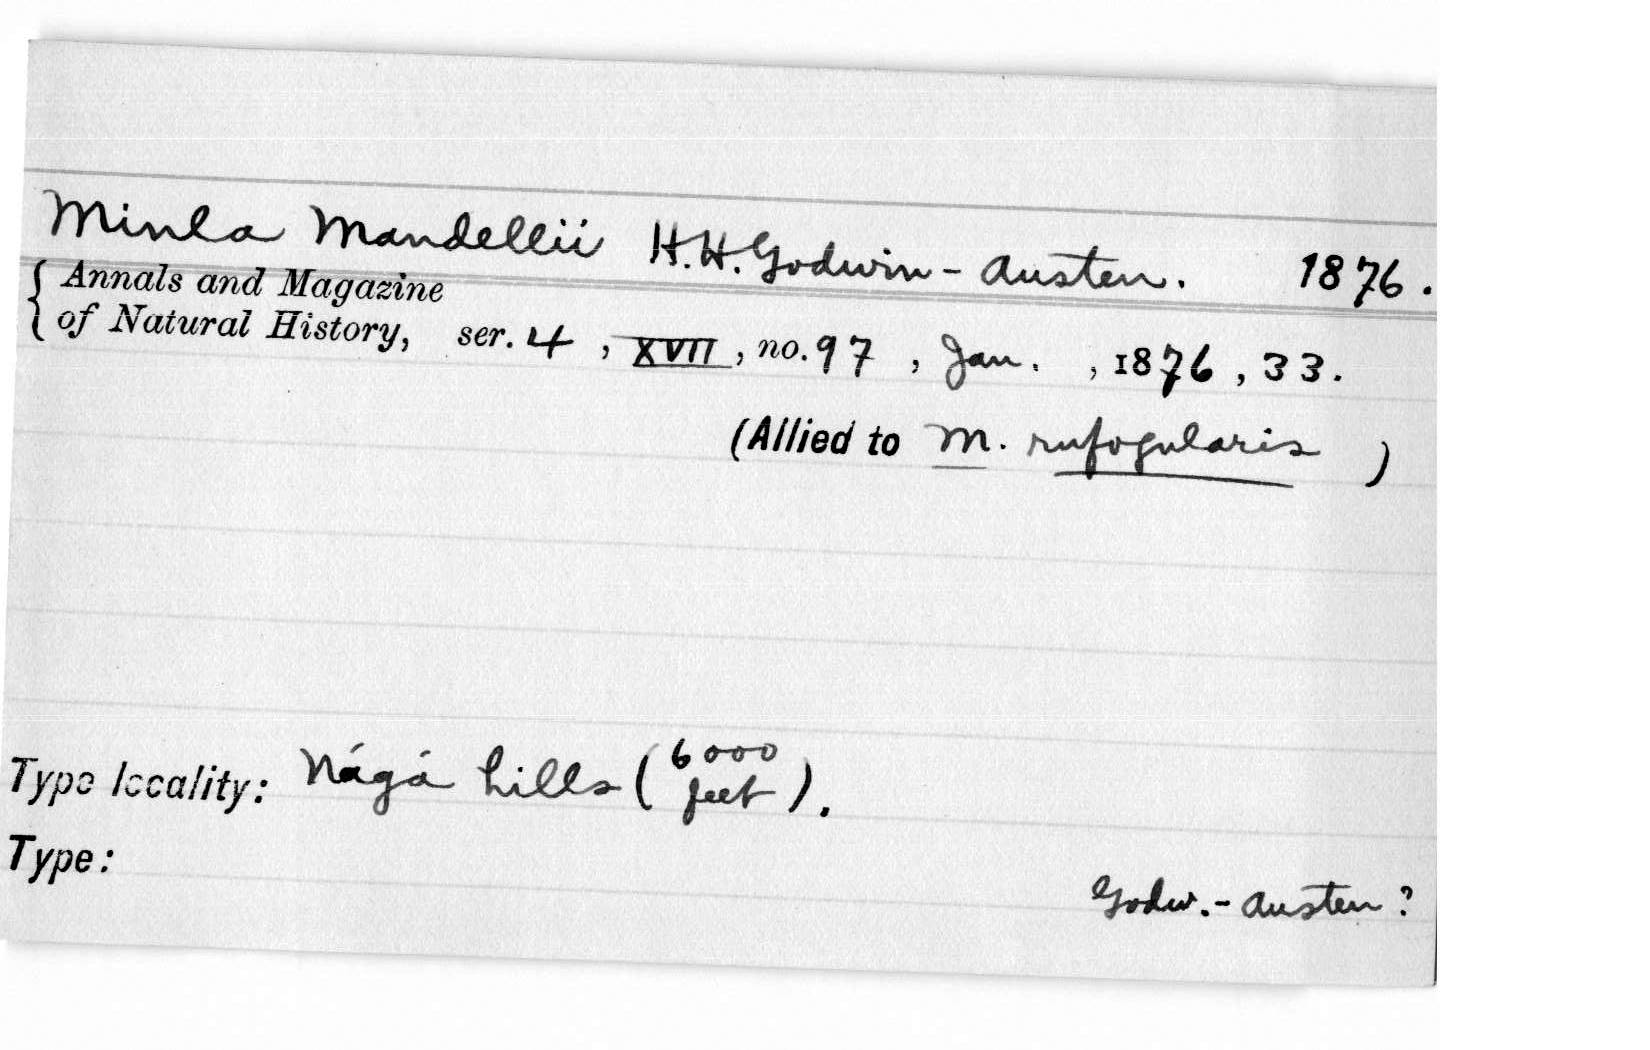 Minla Mandellii H.H. Godwin-Austen. 1876.
Annals and Magazine
of Natural History, ser. 4, XVII, no. 97, Jan., 1876, 33.
(Allied to M. rufogularis)
Type locality: Nágá hills (6000 feet).
Type:
Godw.-Austen?